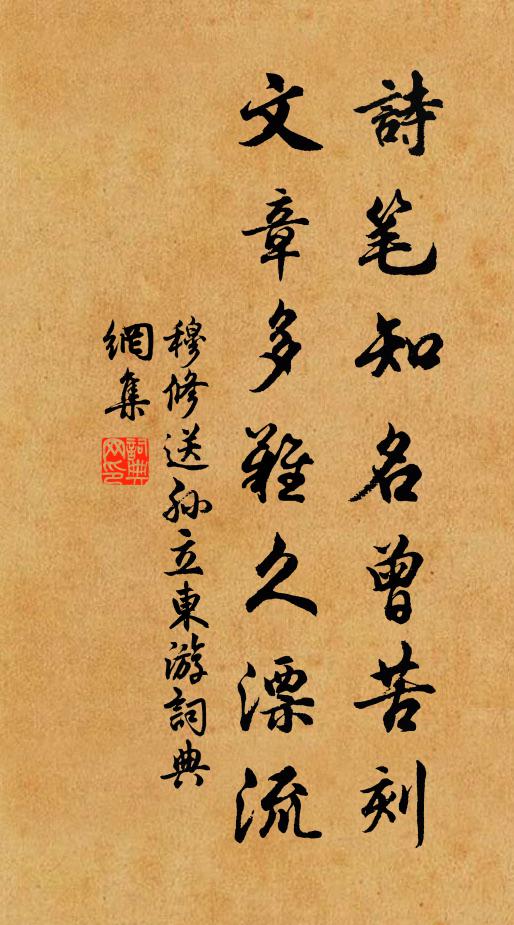 詩笔知名曾苦刻
文章多難久漂流
穆修送孙立東游詞典
網集
詞典
网印